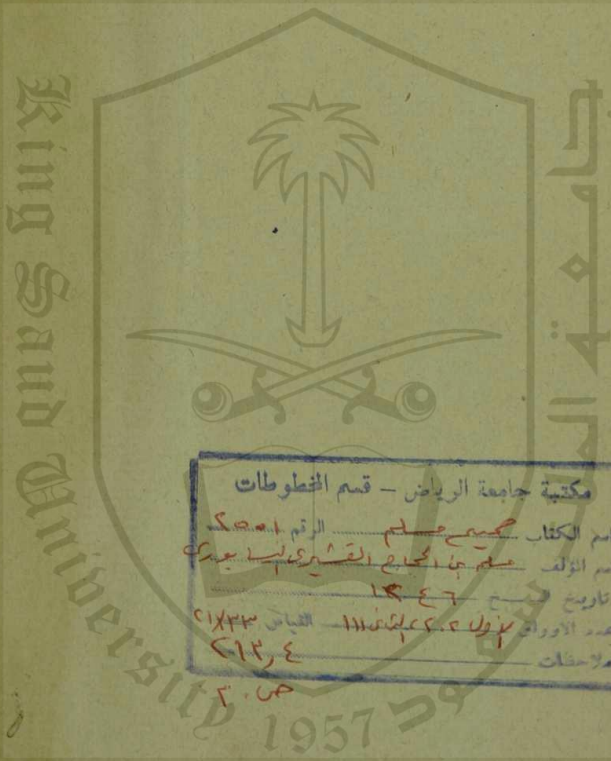 King Saud University
جامعة الملك سعود
1957
مكتبة جامعة الرياض – قسم المخطوطات
اسم الكتاب صحيح مسلم الرقم ٢٥٥١
اسم المؤلف مسلم بن الحجاج القشيري النيسابوري
تاريخ النسخ ١٢٤٦
عدد الأوراق الأول ٢٠٢ الثاني ١١١ القياس ٢١×٣٣
ملاحظات ٢١٣٫٤
ص.